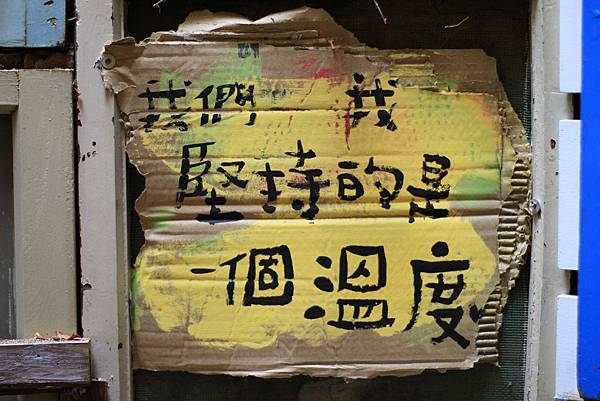 我們 我
堅持的是
一個溫度